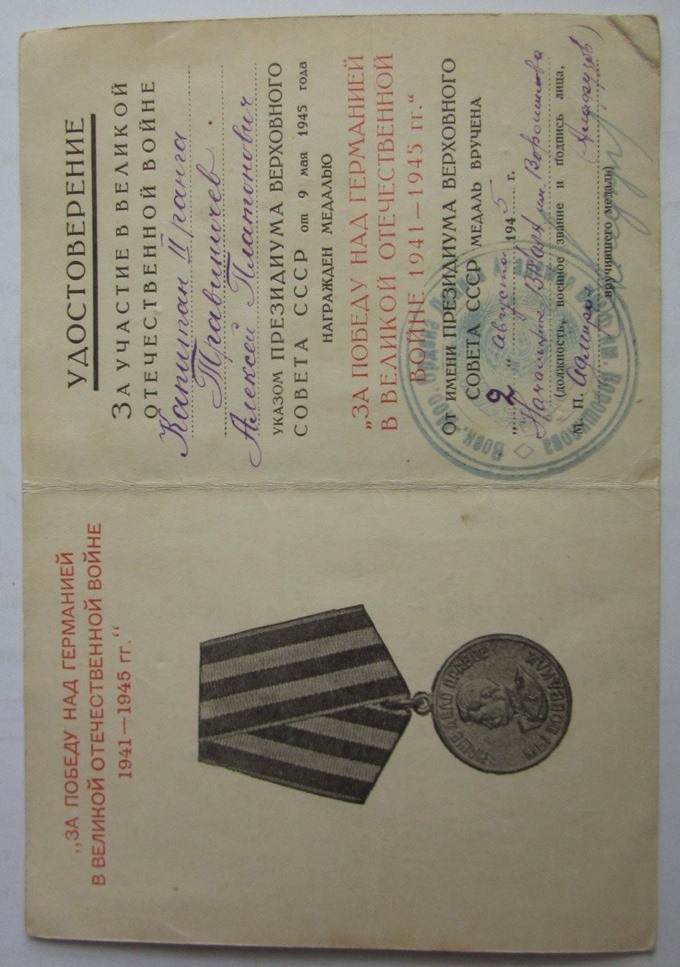 „ЗА ПОБЕДУ НАД ГЕРМАНИЕЙ
В ВЕЛИКОЙ ОТЕЧЕСТВЕННОЙ ВОЙНЕ
1941—1945 гг.“
НАШЕ ДЕЛО ПРАВОЕ
МЫ ПОБЕДИЛИ
УДОСТОВЕРЕНИЕ
ЗА УЧАСТИЕ В ВЕЛИКОЙ
ОТЕЧЕСТВЕННОЙ ВОЙНЕ
Капитан II ранга
Травиничев
Алексей Платонович
УКАЗОМ ПРЕЗИДИУМА ВЕРХОВНОГО
СОВЕТА СССР от 9 мая 1945 года
НАГРАЖДЕН МЕДАЛЬЮ
„ЗА ПОБЕДУ НАД ГЕРМАНИЕЙ
В ВЕЛИКОЙ ОТЕЧЕСТВЕННОЙ
ВОЙНЕ 1941—1945 гг.“
От ИМЕНИ ПРЕЗИДИУМА ВЕРХОВНОГО
СОВЕТА СССР МЕДАЛЬ ВРУЧЕНА
„2“ августа 1945 г.
Начальник им Ворошилова
(должность, военное звание и подпись лица,
М. П. Адмирал
вручившего медаль)